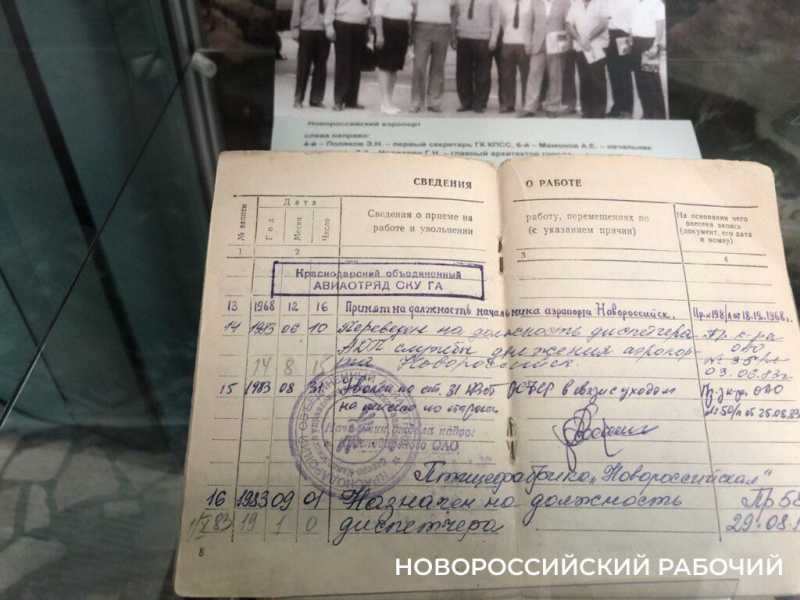 Новороссийский аэропорт
слева направо:
4-й – Поляков Э.Н. – первый секретарь ГК КПСС, 6-й – Мамонов А.Е. – начальник
Г.Н. – главный архитектор города
СВЕДЕНИЯ О РАБОТЕ
№ записи
Дата
Год
Месяц
Число
Сведения о приеме на работу, перемещениях по
работе и увольнении (с указанием причин)
На основании чего
внесена запись
(документ, его дата
и номер)
1 2 3 4
Краснодарский объединенный
АВИАОТРЯД СКУ ГА
13 1968 12 16 Принят на должность начальника аэропорта Новороссийск. Пр. №198/л от 18.12.1968г.
14 1983 06 10 Переведен на должность диспетчера Пр. к-ра
АДП службы движения аэропор- ОАО
та Новороссийск.
14 8 15 03.06.83г.
15 1983 08 31 Уволен по ст. 31 КЗоТ РСФСР в связи с уходом ОАО
на пенсию по старости 25.08.83
Начальник отдела кадров
ОАО
Птицефабрика „Новороссийская"
16 1983 09 01 Назначен на должность Пр 58
19 1 0 диспетчера 29.08.
8
НОВОРОССИЙСКИЙ РАБОЧИЙ